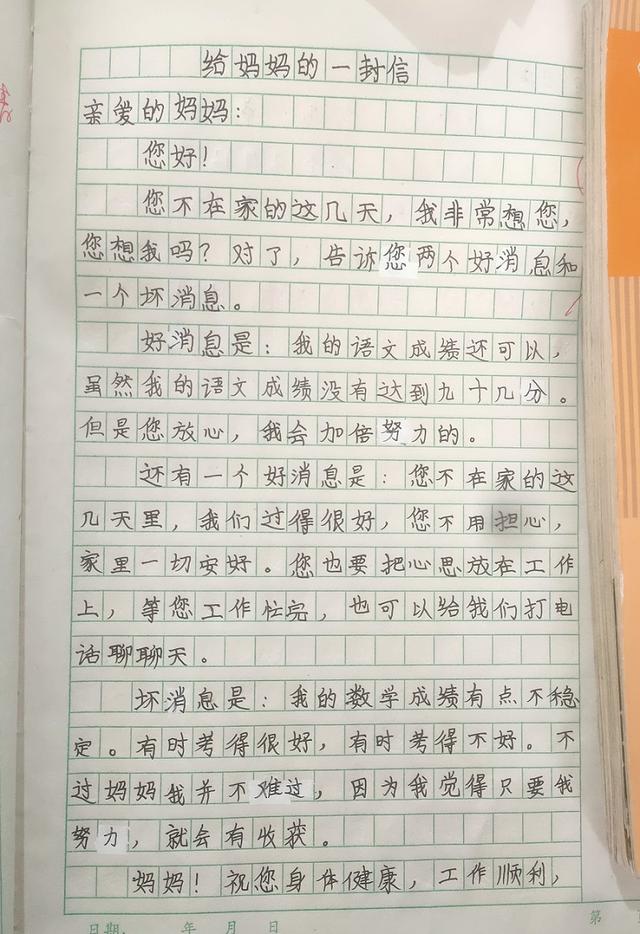 给妈妈的一封信
亲爱的妈妈：
您好！
您不在家的这几天，我非常想您，
您想我吗？对了，告诉您两个好消息和
一个坏消息。
好消息是：我的语文成绩还可以，
虽然我的语文成绩没有达到九十几分。
但是您放心，我会加倍努力的。
还有一个好消息是：您不在家的这
几天里，我们过得很好，您不用担心，
家里一切安好。您也要把心思放在工作
上，等您工作忙完，也可以给我们打电
话聊聊天。
坏消息是：我的数学成绩有点不稳
定。有时考得很好，有时考得不好。不
过妈妈我并不难过，因为我觉得只要我
努力，就会有收获。
妈妈！祝您身体健康，工作顺利，
日期： 年 月 日 第